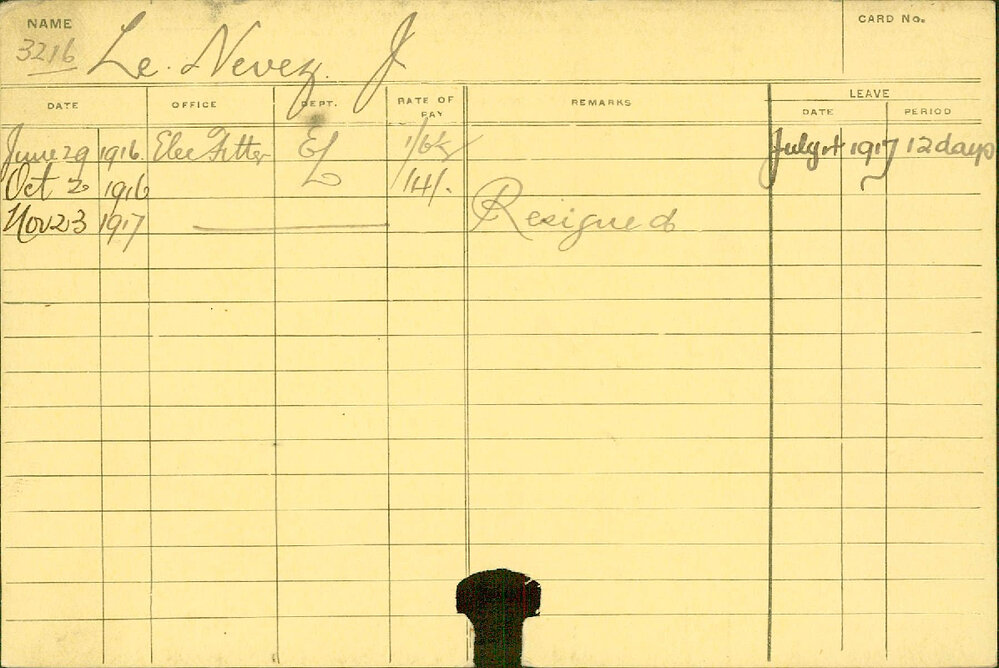 NAME
CARD No.
3216 Le. Nevez. J
DATE OFFICE DEPT. RATE OF PAY REMARKS LEAVE
DATE PERIOD
June 29 1916. Elec Fitter EL 1/6½ July 4 1917 12 days
Oct 2 1916 14/.
Nov 23 1917 Resigned